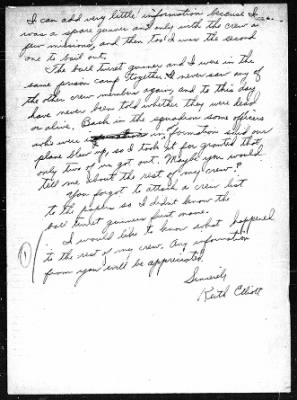 I can add very little information because I
was a spare gunner and only with the crew a
few missions, and then too I was the second
one to bail out.
The ball turret gunner and I were in the
same prison camp together. I never saw any of
the other crew members again, and to this day
have never been told whether they were dead
or alive. Back in the squadron some officers
who were in information said our
plane blew up, so I took it for granted that
only two of us got out. Maybe you would
tell me about the rest of my crew?
You forgot to attach a crew list
to the papers so I didnt know the
ball turret gunners first name.
I would like to know what happened
to the rest of my crew. Any information
from you will be appreciated.
1
Sincerely
Keith Elliott